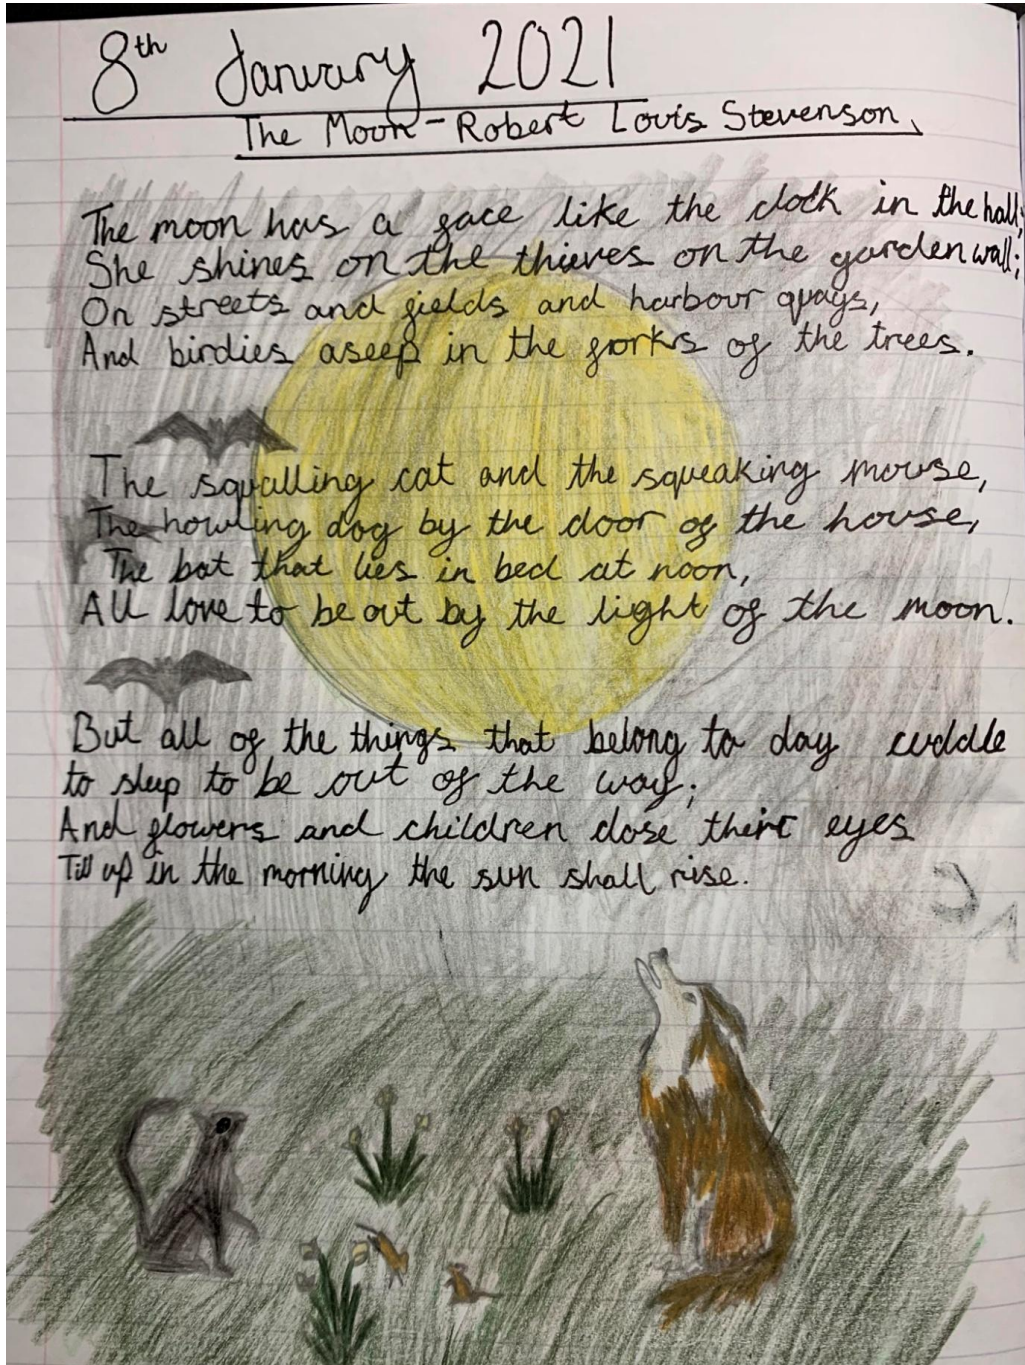 8th January 2021
The Moon - Robert Louis Stevenson.
The moon has a face like the clock in the hall;
She shines on the thieves on the garden wall;
On streets and fields and harbour quays,
And birdies aseep in the forks of the trees.
The squalling cat and the squeaking mouse,
The howling dog by the door of the house,
The bat that lies in bed at noon,
All love to be out by the light of the moon.
But all of the things that belong to day cuddle
to sleep to be out of the way;
And flowers and children close their eyes
Till up in the morning the sun shall rise.